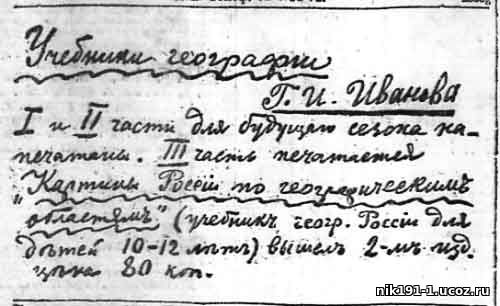 Учебники географии
Г. И. Иванова
I и II части для будущего сезона на-
печатаны. III часть печатается
„Картины Россіи по географическимъ
областямъ" (учебникъ геогр. Россіи для
дѣтей 10-12 лѣтъ) вышелъ 2-мъ изд.
цѣна 80 коп.
nik191-1.ucoz.ru